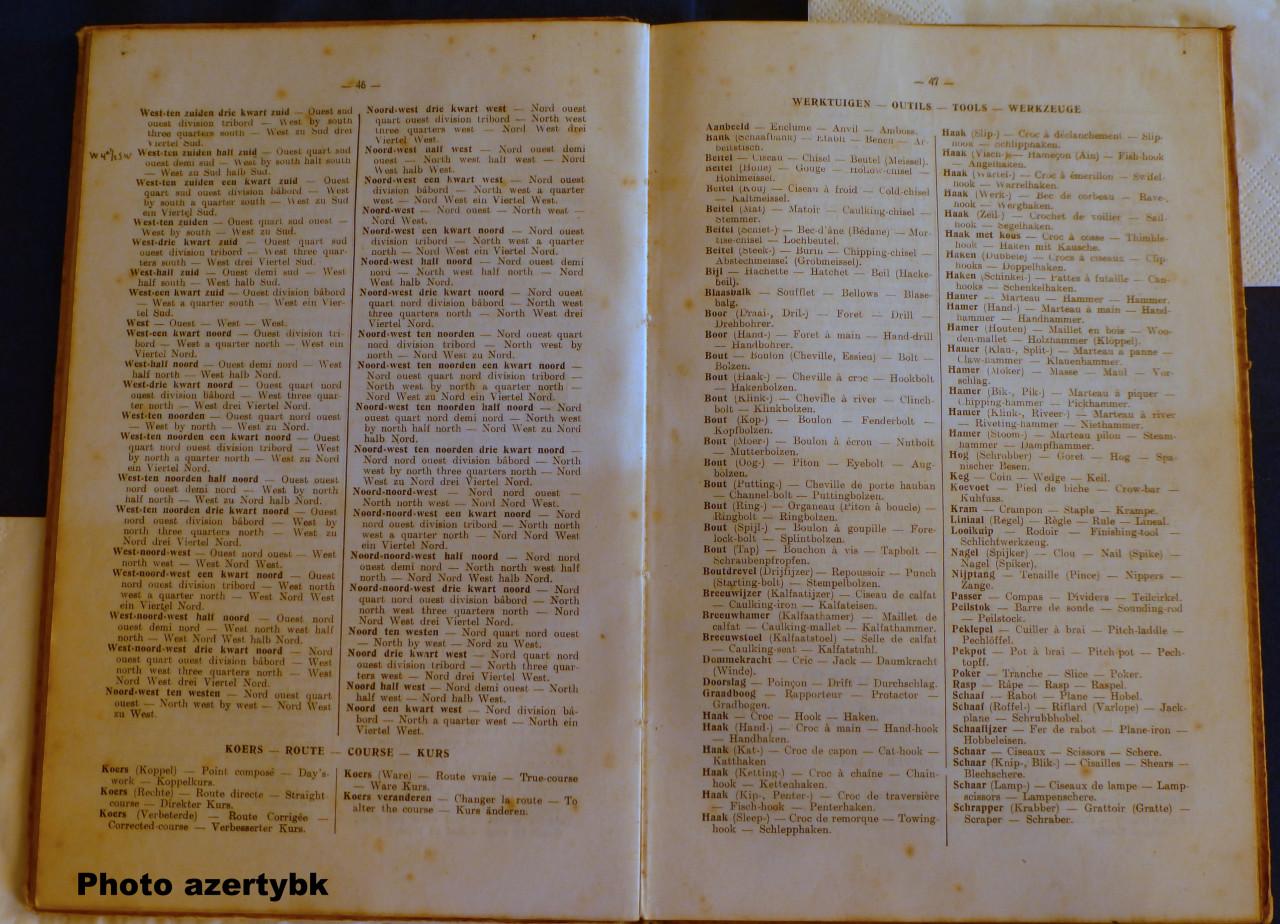 — 46 —
West-ten zuiden drie kwart zuid — Ouest sud
ouest division tribord — West by south
three quarters south — West zu Sud drei
Viertel Sud.
West-ten zuiden half zuid — Ouest quart sud
ouest demi sud — West by south half south
— West zu Sud halb Sud.
West-ten zuiden een kwart zuid — Ouest
quart sud ouest division bâbord — West
by south a quarter south — West zu Sud
ein Viertel Sud.
West-ten zuiden — Ouest quart sud ouest —
West by south — West zu Sud.
West-drie kwart zuid — Ouest quart sud
ouest division tribord — West three quar-
ters south — West drei Viertel Sud.
West-half zuid — Ouest demi sud — West
half south — West halb Sud.
West-een kwart zuid — Ouest division bâbord
— West a quarter south — West ein Vier-
tel Sud.
West — Ouest — West — West.
West-een kwart noord — Ouest division tri-
bord — West a quarter north — West ein
Viertel Nord.
West-half noord — Ouest demi nord — West
half north — West halb Nord.
West-drie kwart noord — Ouest quart nord
ouest division bâbord — West three quar-
ter north — West drei Viertel Nord.
West-ten noorden — Ouest quart nord ouest
— West by north — West zu Nord.
West-ten noorden een kwart noord — Ouest
quart nord ouest division tribord — West
by north a quarter north — West zu Nord
ein Viertel Nord.
West-ten noorden half noord — Ouest ouest
nord ouest demi nord — West by north
half north — West zu Nord halb Nord.
West-ten noorden drie kwart noord — Ouest
nord ouest division bâbord — West by
north three quarters north — West zu
Nord drei Viertel Nord.
West-noord-west — Ouest nord ouest — West
north west — West Nord West.
West-noord-west een kwart noord — Ouest
nord ouest division tribord — West north
west a quarter north — West Nord West
ein Viertel Nord.
West-noord-west half noord — Ouest nord
ouest demi nord — West north west half
north — West Nord West halb Nord.
West-noord-west drie kwart noord — Nord
ouest quart ouest division bâbord — West
north west three quarters north — West
Nord West drei Viertel Nord.
Noord-west ten westen — Nord ouest quart
ouest — North west by west — Nord West
zu West.
Noord-west drie kwart west — Nord ouest
quart ouest division tribord — North west
three quarters west — Nord West drei
Viertel West.
Noord-west half west — Nord ouest demi
ouest — North west half west — Nord
West halb West.
Noord-west een kwart west — Nord ouest
division bâbord — North west a quarter
west — Nord West ein Viertel West.
Noord-west — Nord ouest — North west —
Nord West.
Noord-west een kwart noord — Nord ouest
division tribord — North west a quarter
north — Nord West ein Viertel Nord.
Noord-west half noord — Nord ouest demi
nord — North west half north — Nord
West halb Nord.
Noord-west drie kwart noord — Nord ouest
quart nord division bâbord — North west
three quarters north — Nord West drei
Viertel Nord.
Noord-west ten noorden — Nord ouest quart
nord division tribord — North west by
north — Nord West zu Nord.
Noord-west ten noorden een kwart noord —
Nord ouest quart nord division tribord —
North west by north a quarter north —
Nord West zu Nord ein Viertel Nord.
Noord-west ten noorden half noord — Nord
ouest quart nord demi nord — North west
by north half north — Nord West zu Nord
halb Nord.
Noord-west ten noorden drie kwart noord —
Nord nord ouest division bâbord — North
west by north three quarters north — Nord
West zu Nord drei Viertel Nord.
Noord-noord-west — Nord nord ouest —
North north west — Nord Nord West.
Noord-noord-west een kwart noord — Nord
nord ouest division tribord — North north
west a quarter north — Nord Nord West
ein Viertel Nord.
Noord-noord-west half noord — Nord nord
ouest demi nord — North north west half
north — Nord Nord West halb Nord.
Noord-noord-west drie kwart noord — Nord
quart nord ouest division bâbord — North
north west three quarters north — Nord
Nord West drei Viertel Nord.
Noord ten westen — Nord quart nord ouest
— North by west — Nord zu West.
Noord drie kwart west — Nord quart nord
ouest division tribord — North three quar-
ters west — Nord drei Viertel West.
Noord half west — Nord demi ouest — North
half west — Nord halb West.
Noord een kwart west — Nord division bâ-
bord — North a quarter west — North ein
Viertel West.
KOERS — ROUTE — COURSE — KURS
Koers (Koppel) — Point composé — Day's-
work — Koppelkurs.
Koers (Rechte) — Route directe — Straight-
course — Direkter Kurs.
Koers (Verbeterde) — Route Corrigée —
Corrected-course — Verbesserter Kurs.
Koers (Ware) — Route vraie — True-course
— Ware Kurs.
Koers veranderen — Changer la route — To
alter the course — Kurs änderen.
— 47 —
WERKTUIGEN — OUTILS — TOOLS — WERKZEUGE
Aanbeeld — Enclume — Anvil — Amboss.
Bank (Schaafbank) — Etabli — Bench — Ar-
beitstisch.
Beitel — Ciseau — Chisel — Beutel (Meissel).
Beitel (Holle) — Gouge — Hollow-chisel —
Hohlmeissel.
Beitel (Kou) — Ciseau à froid — Cold-chisel
— Kaltmeissel.
Beitel (Mat) — Matoir — Caulking-chisel —
Stemmer.
Beitel (Schiet-) — Bec-d'âne (Bédane) — Mor-
tise-chisel — Lochbeutel.
Beitel (Steek-) — Burin — Chipping-chisel —
Abstechmeissel (Grobmeissel).
Bijl — Hachette — Hatchet — Beil (Hacke-
beil).
Blaasbalk — Soufflet — Bellows — Blase-
balg.
Boor (Draai-, Dril-) — Foret — Drill —
Drehbohrer.
Boor (Hand-) — Foret à main — Hand-drill
— Handbohrer.
Bout — Boulon (Cheville, Essieu) — Bolt —
Bolzen.
Bout (Haak-) — Cheville à croc — Hookbolt
— Hakenbolzen.
Bout (Klink-) — Cheville à river — Clinch-
bolt — Klinkbolzen.
Bout (Kop-) — Boulon — Fenderbolt —
Kopfbolzen.
Bout (Moer-) — Boulon à écrou — Nutbolt
— Mutterbolzen.
Bout (Oog-) — Piton — Eyebolt — Aug-
bolzen.
Bout (Putting-) — Cheville de porte hauban
— Channel-bolt — Puttingbolzen.
Bout (Ring-) — Organeau (Piton à boucle) —
Ringbolt — Ringbolzen.
Bout (Spijl-) — Boulon à goupille — Fore-
lock-bolt — Splintbolzen.
Bout (Tap) — Bouchon à vis — Tapbolt —
Schraubenpfropfen.
Boutdrevel (Drijfijzer) — Repoussoir — Punch
(Starting-bolt) — Stempelbolzen.
Breeuwijzer (Kalfaatijzer) — Ciseau de calfat
— Caulking-iron — Kalfateisen.
Breeuwhamer (Kalfaathamer) — Maillet de
calfat — Caulking-mallet — Kalfathammer.
Breeuwstoel (Kalfaatstoel) — Selle de calfat
— Caulking-seat — Kalfatstuhl.
Dommekracht — Cric — Jack — Daumkracht
(Winde).
Doorslag — Poinçon — Drift — Durchschlag.
Graadboog — Rapporteur — Protactor —
Gradbogen.
Haak — Croc — Hook — Haken.
Haak (Hand-) — Croc à main — Hand-hook
— Handhaken.
Haak (Kat-) — Croc de capon — Cat-hook —
Katthaken
Haak (Ketting-) — Croc à chaîne — Chain-
hook — Kettenhaken.
Haak (Kip-, Penter-) — Croc de traversière
— Fisch-hook — Penterhaken.
Haak (Sleep-) — Croc de remorque — Towing-
hook — Schlepphaken.
Haak (Slip-) — Croc à déclanchement — Slip-
hook — Schlippnaken.
Haak (Visch-)— Hameçon (Ain) — Fish-hook
— Angelhaken.
Haak (Wartel-) — Croc à émerillon — Swifel-
hook — Warrelhaken.
Haak (Werk-) — Bec de corbeau — Rave-
hook — Werghaken.
Haak (Zeil-) — Crochet de voilier — Sail-
hook — Segelhaken.
Haak met kous — Croc à cosse — Thimble-
hook — Haken mit Kausche.
Haken (Dubbele) — Crocs à ciseaux — Clip-
hooks — Doppelhaken.
Haken (Schinkel-) — Pattes à futaille — Can-
hooks — Schenkelhaken.
Hamer — Marteau — Hammer — Hammer.
Hamer (Hand-) — Marteau à main — Hand-
hammer — Handhammer.
Hamer (Houten) — Maillet en bois — Woo-
den-mallet — Holzhammer (Klöppel).
Hamer (Klau-, Split-) — Marteau a panne —
Claw-hammer — Klauenhammer.
Hamer (Moker) — Masse — Maul — Vor-
schlag.
Hamer (Bik-, Pik-) — Marteau à piquer —
Chipping-hammer — Pickhammer.
Hamer (Klink-, Riveer-) — Marteau à river
— Riveting-hammer — Niethammer.
Hamer (Stoom-) — Marteau pilou — Steam-
hammer — Dampfhammer.
Hog (Schrobber) — Goret — Hog — Spa-
nischer Besen.
Keg — Coin — Wedge — Keil.
Koevoet — Pied de biche — Crow-bar —
Kuhfuss.
Kram — Crampon — Staple — Krampe.
Liniaal (Regel) — Règle — Rule — Lineal.
Looikuip — Rodoir — Finishing-tool —
Schlichtwerkzeug.
Nagel (Spijker) — Clou — Nail (Spike) —
Nagel (Spiker).
Nijptang — Tenaille (Pince) — Nippers —
Zange.
Passer — Compas — Dividers — Teilcirkel.
Peilstok — Barre de sonde — Sounding-rod
— Peilstock.
Peklepel — Cuiller à brai — Pitch-laddle —
Pechlöffel.
Pekpot — Pot à brai — Pitch-pot — Pech-
topff.
Poker — Tranche — Slice — Poker.
Rasp — Râpe — Rasp — Raspel.
Schaaf — Rabot — Plane — Hobel.
Schaaf (Roffel-) — Riflard (Varlope) — Jack-
plane — Schrubbhobel.
Schaafijzer — Fer de rabot — Plane-iron —
Hobbeleisen.
Schaar — Ciseaux — Scissors — Schere.
Schaar (Knip-, Blik-) — Cisailles — Shears —
Blechschere.
Schaar (Lamp-) — Ciseaux de lampe — Lamp-
scissors — Lampenschere.
Schrapper (Krabber) — Grattoir (Gratte) —
Scraper — Schraber.
Photo azertybk